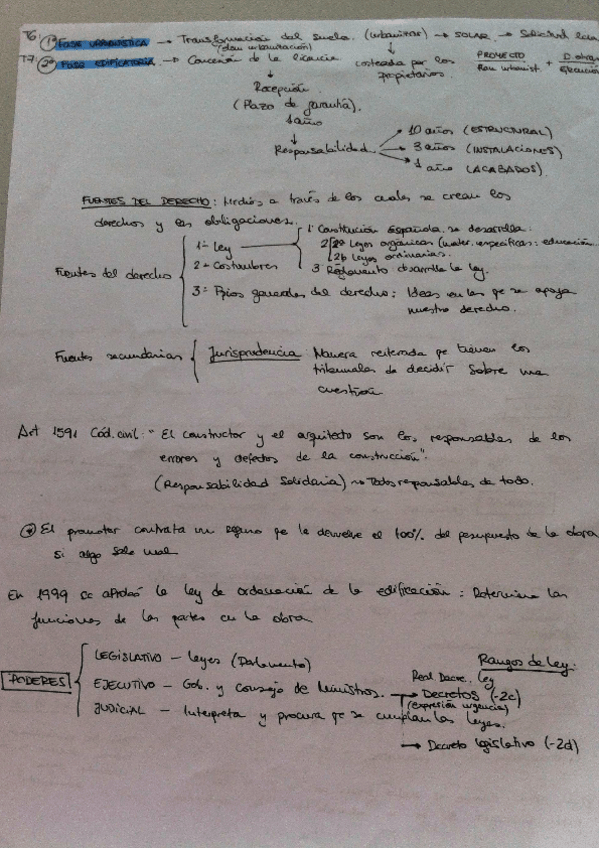 T6: 1ª FASE URBANÍSTICA → Transformación del suelo. (urbanizar) → SOLAR → Solicitud
(plan urbanización)
T7: 2ª FASE EDIFICATORIA → Concesión de la licencia. costeada por los propietarios PROYECTO Plan urbanist. + D. obra Ejecución
Recepción
(Plazo de garantía).
1 año
Responsabilidad
10 años (ESTRUCTURAL)
3 años (INSTALACIONES)
1 año (ACABADOS).
FUENTES DEL DERECHO: Medios a través de los cuales se crean los
derechos y las obligaciones.
Fuentes del derecho
1º Ley
1º Constitución Española. se desarrolla.
2 2ª Leyes orgánicas (mater. específicas: educación
2b Leyes ordinarias.
3 Reglamento desarrolla la ley.
2º Costumbres
3º Ppios generales del derecho: Ideas en las qe se apoya
nuestro derecho.
Fuentes secundarias { Jurisprudencia: Manera reiterada qe tienen los
tribunales de decidir sobre una
cuestión
Art 1591 Cód. civil: "El constructor y el arquitecto son los responsables de los
errores y defectos de la construcción".
(Responsabilidad Solidaria) → Todos responsables de todo.
El promotor contrata un seguro qe le devuelve el 100% del presupuesto de la obra
si algo sale mal
En 1999 se aprobó la ley de ordenación de la edificación: Determina las
funciones de las partes en la obra
PODERES
LEGISLATIVO – leyes (Parlamento)
EJECUTIVO – Gob. y consejo de ministros.
JUDICIAL – Interpreta y procura qe se cumplan las leyes.
Rangos de ley:
Real Decre. ley
→ Decretos (-2c)
(expresión urgencia)
→ Decreto legislativo (-2d)